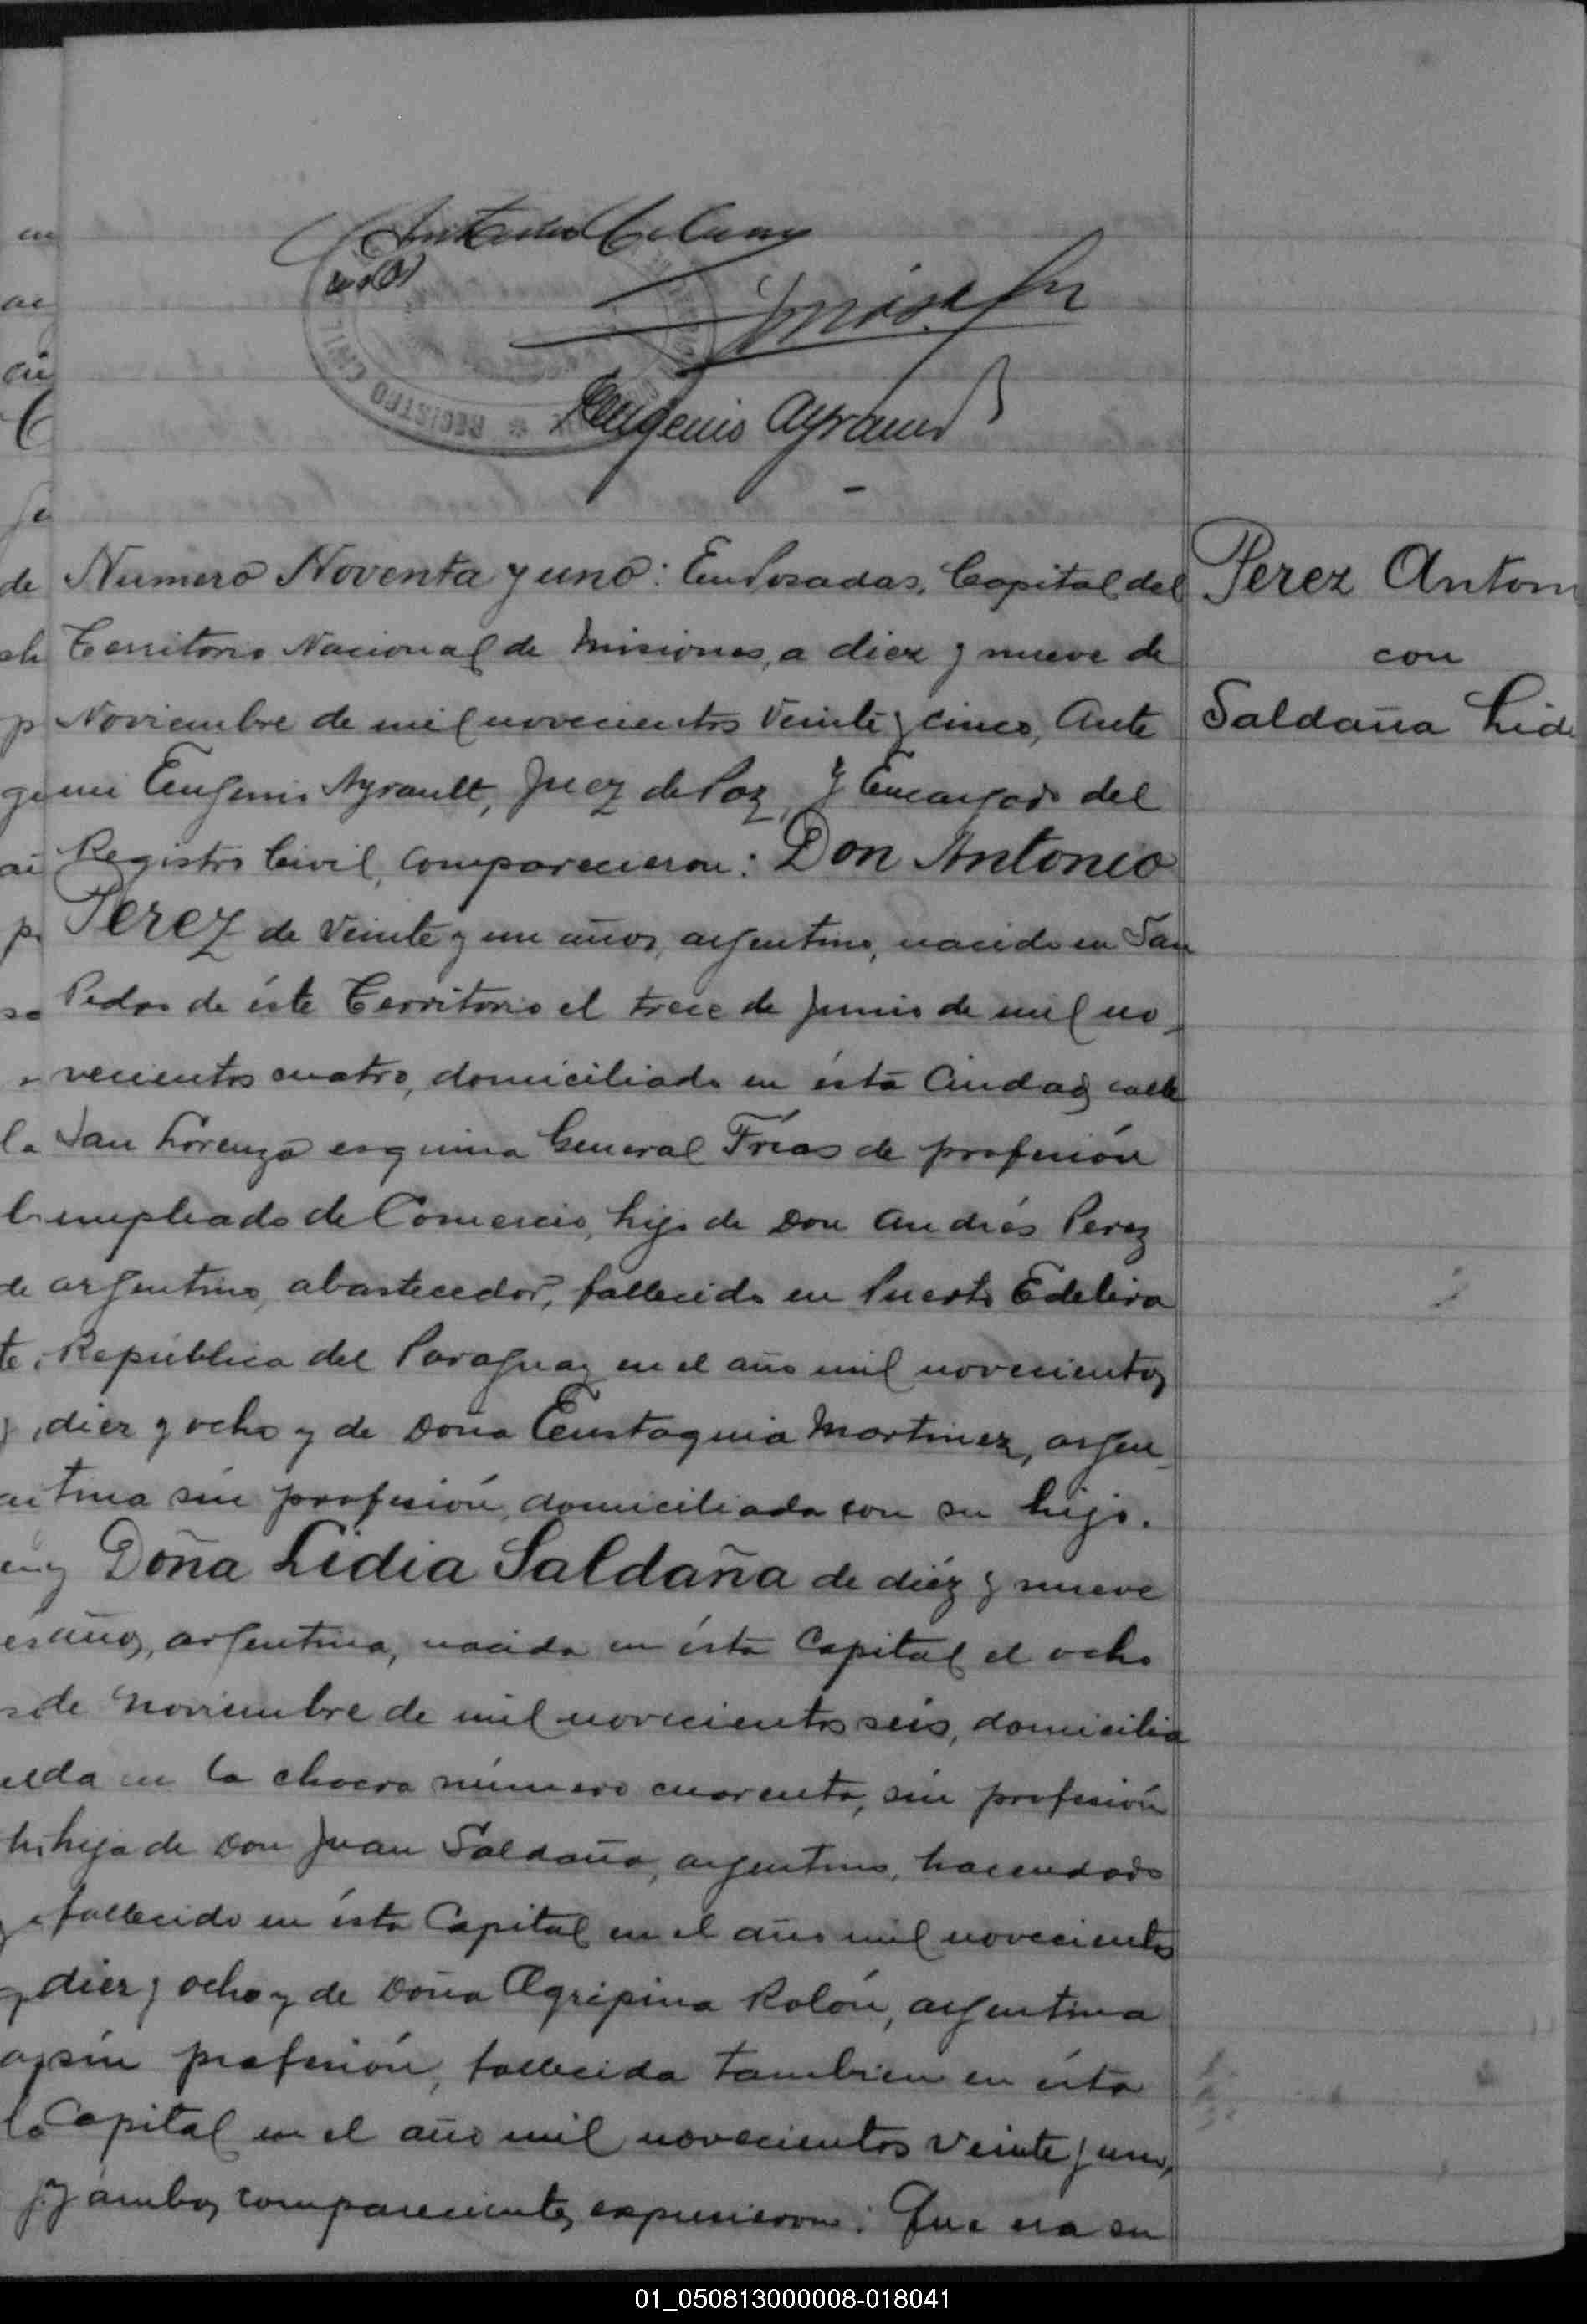 REGISTRO CIVIL
Eugenio Ayrault
Numero Noventa y uno: En Posadas, Capital del
Territorio Nacional de Misiones, a diez y nueve de
Noviembre de mil novecientos Veinte y cinco, Ante
mi Eugenio Ayrault, Juez de Paz, y Encargado del
Registro Civil, comparecieron: Don Antonio
Perez de Veinte y un años, argentino, nacido en San
Pedro de éste Territorio el trece de Junio de mil no-
vecientos cuatro, domiciliado en ésta Ciudad calle
San Lorenzo esquina General Frías de profesión
empleado de Comercio, hijo de Don Andrés Perez
argentino, abastecedor, fallecido en Puerto Edelira
República del Paraguay en el año mil novecientos
diez y ocho y de Doña Eustaquia Martinez, argen-
tina sin profesión, domiciliada con su hijo.
y Doña Lidia Saldaña de diéz y nueve
años, argentina, nacida en ésta Capital el ocho
de Noviembre de mil novecientos seis, domicilia
da en la chacra número cuarenta, sin profesión
hija de Don Juan Saldaña, argentino, hacendado
fallecido en ésta Capital en el año mil novecientos
diez y ocho y de Doña Agripina Rolón, argentina
sin profesión, fallecida tambien en ésta
Capital en el año mil novecientos veinte y uno,
y ámbos comparecientes expusieron: Que era su
Perez Anton
con
Saldaña Lid
01_050813000008-018041